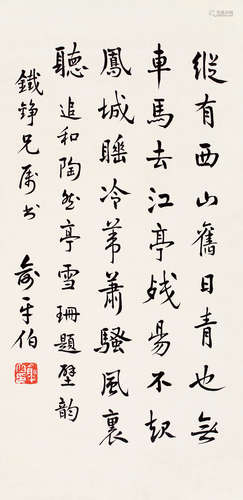 縱有西山舊日青也無
車馬去江亭殘陽不起
鳳城睡冷葦蕭騷風裏
聽 追和陶然亭雪珊題壁韻
鐵錚兄属书 俞平伯